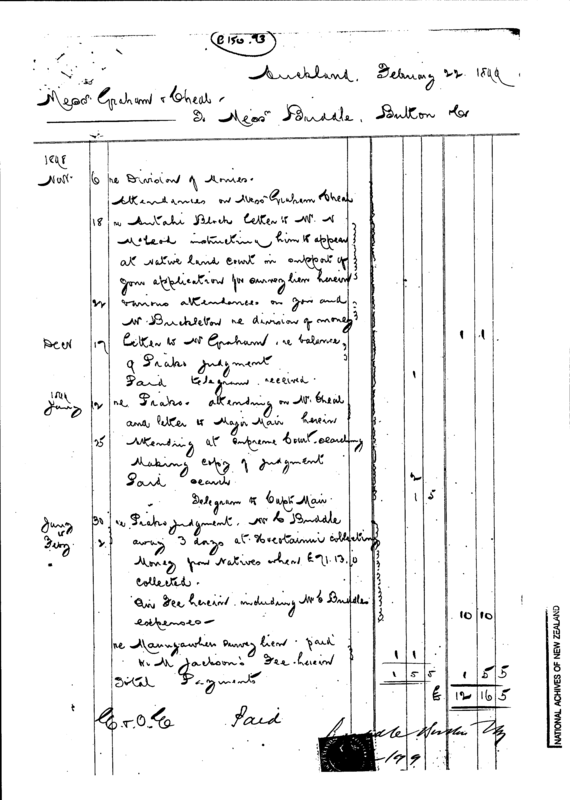 B 150.93
Auckland, February 22 1899
Messrs Graham & Cheal
To Messrs Buddle, Button & Co
1898
Novr 6 re Division of Monies.
Attendances on Messrs Graham Cheal
18 re Block letter to Mr N
McLeod instructing him to appear
at Native land Court in support of
your application for survey lien herein
22 Various attendances on you and
Mr Buckleton re division of money
1 1
Decr 17 Letter to Mr Graham re balance
of Piako judgment
Paid telegram received 1
1899
Jany 12 re Piako. attending on Mr Cheal
and letter to Major Mair herein
25 Attending at Supreme Court searching
Making copy of judgment
Paid search 2
Telegram to Capt Mair
Jany 30 re Piako judgment. Mr C Buddle
to
Feby 2 away 3 days at collecting
Money from Natives when £71.13.0
collected.
Our Fee herein including Mr C Buddle
expenses — 10 10
re survey lien paid
Mr M Jackson's Fee herein 1 1
Total Payments 1 5 5 1 5 5
£ 12 16 5
E. & O. E Paid
NATIONAL ACHIVES OF NEW ZEALAND